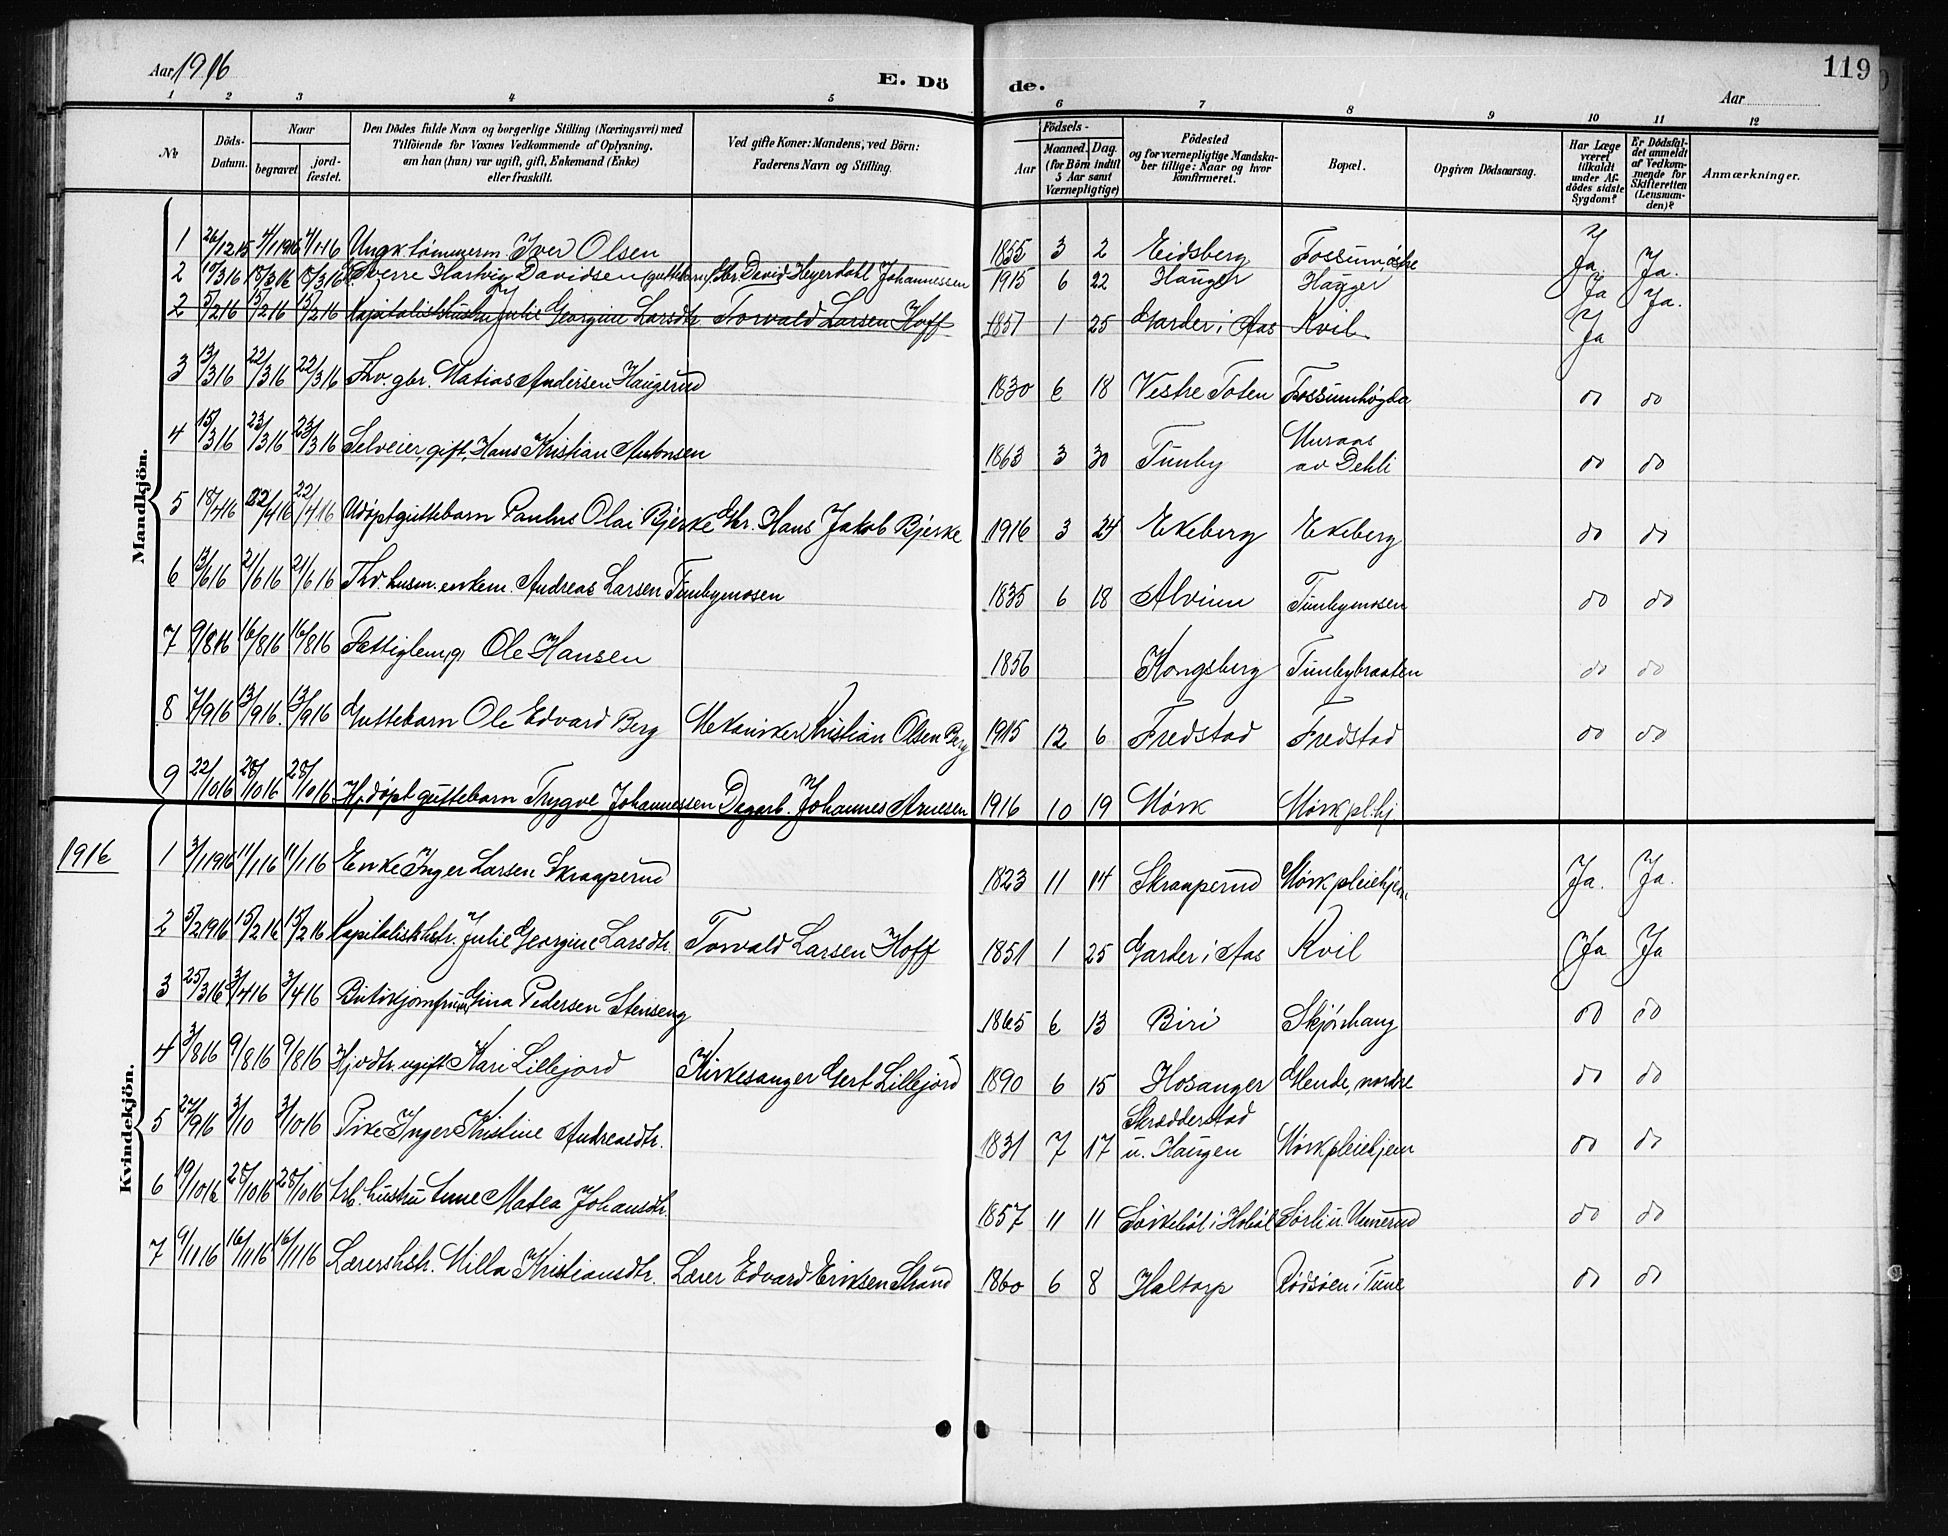 Aar 1916
E. Dö
de.
119
Aar
1 2 3 4 5 6 7 8 9 10 11 12
No
Döds-
Datum.
Naar
begravet
jord-
fæstet.
Den Dödes fulde Navn og borgerlige Stilling (Næringsvei) med
Tilföiende for Voxnes Vedkommende af Oplysning,
om han (hun) var ugift, gift, Enkemand (Enke)
eller fraskilt.
Ved gifte Koner: Mandens, ved Börn:
Faderens Navn og Stilling.
Födsels-
Aar
Maaned. Dag.
(for Börn indtil
5 Aar samt
Værnepligtige)
Födested
og for værnepligtige Mandska-
ber tillige: Naar og hvor
konfirmeret.
Bopæl.
Opgiven Dödsaarsag.
Har Læge
været
tilkaldt
under Af-
dödes sidste
Sygdom?
Er Dödsfal-
det anmeldt
af Vedkom-
mende for
Skifteretten
(Lensman-
den)?
Anmærkninger.
Mandkjön.
1 26/12 15 4/1 1916 4/1 16 Ungk. tömmerm. Iver Olsen 1855 3 2 Eidsberg Fossum, østre Ja Ja.
2 10/3 16 18/3 16 18/3 16 Sverre Hartvig Davidsen (guttebarn) Gbr. David Heyerdahl Johannessen 1915 6 22 Hauger Hauger Ja Ja.
2 5/2 16 15/2 16 15/2 16 Kapitalisthustru Julie Georgine Larsdtr Torvald Larsen Hoff 1851 1 25 Garder i Aas Kvil Ja
3 13/3 16 22/3 16 22/3 16 Fhv. gbr. Matias Andersen Haugerud 1830 6 18 Vestre Toten Fossumhøgda do do
4 15/3 16 23/3 16 23/3 16 Selveier, gift, Hans Kristian Antonsen 1863 3 30 Tunby Muraas av Dehli do do
5 18/4 16 22/4 16 22/4 16 Udøpt guttebarn Paulus Olai Bjerke Gbr. Hans Jakob Bjerke 1916 3 24 Ekeberg Ekeberg do do
6 13/6 16 21/6 16 21/6 16 Fhv. husm. enkem. Andreas Larsen Tunbymosen 1835 6 18 Alvim Tunbymosen do do
7 9/8 16 16/8 16 16/8 16 Fattiglem, g. Ole Hansen 1856 Kongsberg Tunbybraaten do do
8 7/9 16 13/9 16 13/9 16 Guttebarn Ole Edvard Berg Mekaniker Kristian Olsen Berg 1915 12 6 Fredstad Fredstad do do
9 22/10 16 28/10 16 28/10 16 Hj.døpt guttebarn Trygve Johannessen Dagarb. Johannes Arnesen 1916 10 19 Mørk Mørk pl.hj
1916
Kvindekjön.
1 3/1 1916 11/1 16 11/1 16 Enke Inger Larsen Skraaperud 1823 11 14 Skraaperud Mørk pleiehjem Ja. Ja.
2 5/2 1916 15/2 16 15/2 16 Kapitalisthstr. Julie Georgine Larsdtr. Torvald Larsen Hoff 1851 1 25 Garder i Aas Kvil Ja Ja
3 25/3 16 3/4 16 3/4 16 Butikjomfru Gina Pedersen Stenseng 1865 6 13 Biri Skjørshaug do do
4 3/8 16 9/8 16 9/8 16 Hjvdtr. ugift Kari Lillejord Kirkesanger Gert Lillejord 1890 6 15 Hosanger Glende, nordre do do
5 27/9 16 3/10 3/10 16 Pike Inger Kristine Andreasdtr. 1831 7 17 Skrædderstad u. Haugen Mørk pleiehjem do do
6 19/10 16 28/10 16 28/10 16 Arb. hustru Anne Matea Johansdtr. 1857 11 11 i Hobøl Sørli u. do do
7 9/11 16 16/11 16 16/11 16 Lærerhstr. Milla Kristiansdtr. Lærer Edvard Eriksen Strand 1860 6 8 Haltorp Rødsøen i Tune do do